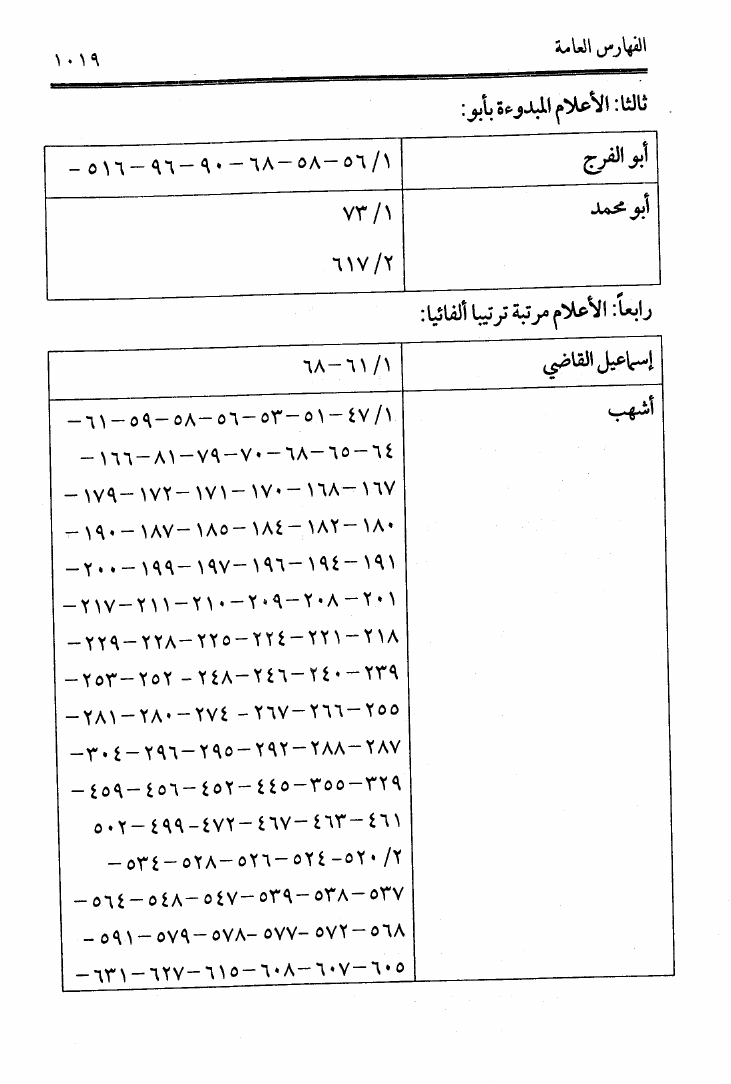 الفهارس العامة ١٠١٩
ثالثا: الأعلام المبدوءة بأبو:
أبو الفرج ١/ ٥٦–٥٨–٦٨–٩٠–٩٦–٥١٦–
أبو محمد ١/ ٧٣
٢/ ٦١٧
رابعاً: الأعلام مرتبة ترتيبا ألفائيا:
إسماعيل القاضي ١/ ٦١–٦٨
أشهب ١/ ٤٧–٥١–٥٣–٥٦–٥٨–٥٩–٦١–
٦٤–٦٥–٦٨–٧٠–٧٩–٨١–١٦٦–
١٦٧–١٦٨–١٧٠–١٧١–١٧٢–١٧٩–
١٨٠–١٨٢–١٨٤–١٨٥–١٨٧–١٩٠–
١٩١–١٩٤–١٩٦–١٩٧–١٩٩–٢٠٠–
٢٠١–٢٠٨–٢٠٩–٢١٠–٢١١–٢١٧–
٢١٨–٢٢١–٢٢٤–٢٢٥–٢٢٨–٢٢٩–
٢٣٩–٢٤٠–٢٤٦–٢٤٨– ٢٥٢–٢٥٣–
٢٥٥–٢٦٦–٢٦٧– ٢٧٤–٢٨٠–٢٨١–
٢٨٧–٢٨٨–٢٩٢–٢٩٥–٢٩٦–٣٠٤–
٣٢٩–٣٥٥–٤٤٥–٤٥٢–٤٥٦–٤٥٩–
٤٦١–٤٦٣–٤٦٧–٤٧٢–٤٩٩–٥٠٢
٢/ ٥٢٠–٥٢٤–٥٢٦–٥٢٨–٥٣٤–
٥٣٧–٥٣٨–٥٣٩–٥٤٧–٥٤٨–٥٦٤–
٥٦٨–٥٧٢–٥٧٧–٥٧٨–٥٧٩–٥٩١–
٦٠٥–٦٠٧–٦٠٨–٦١٥–٦٢٧–٦٣١–